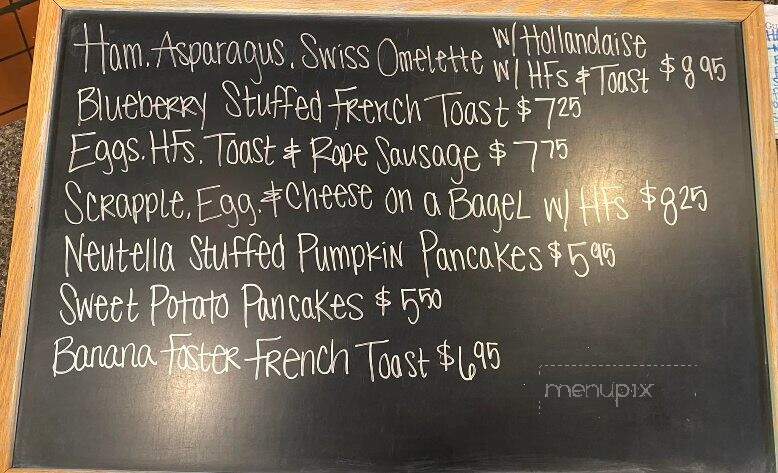 Ham, Asparagus, Swiss Omelette w/ Hollandaise
w/ HFs & Toast $8 95
Blueberry Stuffed French Toast $7 25
Eggs, HFs, Toast & Rope Sausage $7 75
Scrapple, Egg, & Cheese on a Bagel w/ HFs $8 25
Neutella Stuffed Pumpkin Pancakes $5 95
Sweet Potato Pancakes $5 50
Banana Foster French Toast $6 95
menupix